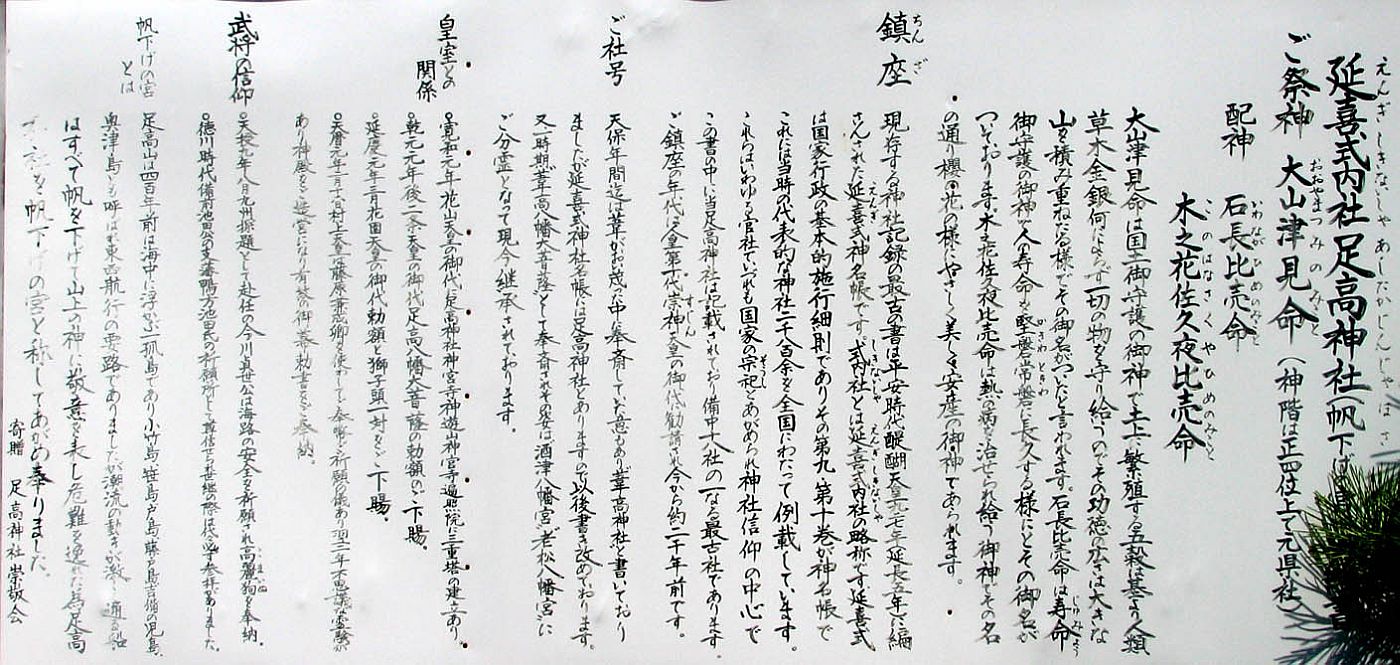 延喜式内社足高神社(帆下げ
ご祭神 大山津見命(神階は正四位上で元県社)
配神 石長比売命
木之花佐久夜比売命
大山津見命は国土御守護の御神で土上に繁殖する五穀は基より人類
草木金銀何によらず一切の物を守り給うのでその功徳の広さは大きな
山を積み重ねたる様でその御名がついたと言われます。石長比売命は寿命
御守護の御神で人の寿命を堅磐常磐に長久する様にとその御名が
ついております。木之花佐久夜比売命は熱の病を治せられ給う御神でその名
の通り櫻の花の様にやさしく美しく安産の御神であられます。
鎮座
現存する神社記録の最古の書は平安時代醍醐天皇九二七年延長五年に編
さんされた延喜式神名帳です。式内社とは延喜式内社の略称です延喜式
は国家行政の基本的施行細則でありその第九、第十巻が神名帳で
これには当時の代表的な神社二千八百余を全国にわたって例載しています。
これらはいわゆる官社でいづれも国家の宗祀とあがめられ神社信仰の中心で
この書の中に当足高神社は記載されており備中十八社の一なる最古社であります。
ご鎮座の年代は人皇第十代崇神天皇の御代に勧請され今から約二千年前です。
ご社号
天保年間迄は葦がおい茂った中に奉斎していた意もあり葦高神社と書いており
ましたが延喜式神社名帳には足高神社とありますので以後書き改めております。
又一時期葦高八幡大菩薩として奉斎されその姿は酒津八幡宮、老松八幡宮に
ご分霊となって現今継承されております。
皇室との関係
○寛和元年花山天皇の御代に足高神社神宮寺神遊山神宮寺遍照院に三重塔の建立あり。
○乾元元年後二条天皇の御代に足高八幡大菩薩の勅額のご下賜。
○延慶元年三月花園天皇の御代勅額と獅子頭一対をご下賜。
○天暦元年二月十八日村上天皇藤原兼
あり神殿をご造宮になり
武将の信仰
○天授九年八月九州探題として赴任の今川貞世公は海路の安全を祈願され高麗狗を奉納。
○徳川時代備前池田公の支藩鴨方池田公の祈願所として尊信せられ
帆下げの宮とは
足高山は四百年前は海中に浮かぶ一孤島であり小竹島、笹島、戸島、藤戸島、吉備の児島、
奥津島とも呼ばれ東西航行の要路でありましたが潮流の動きが激しく通る船
はすべて帆を下げて山上の神に敬意を表し危難を逃れた為足高
神社を帆下げの宮と称してあがめ奉りました。
寄贈 足高神社崇敬会